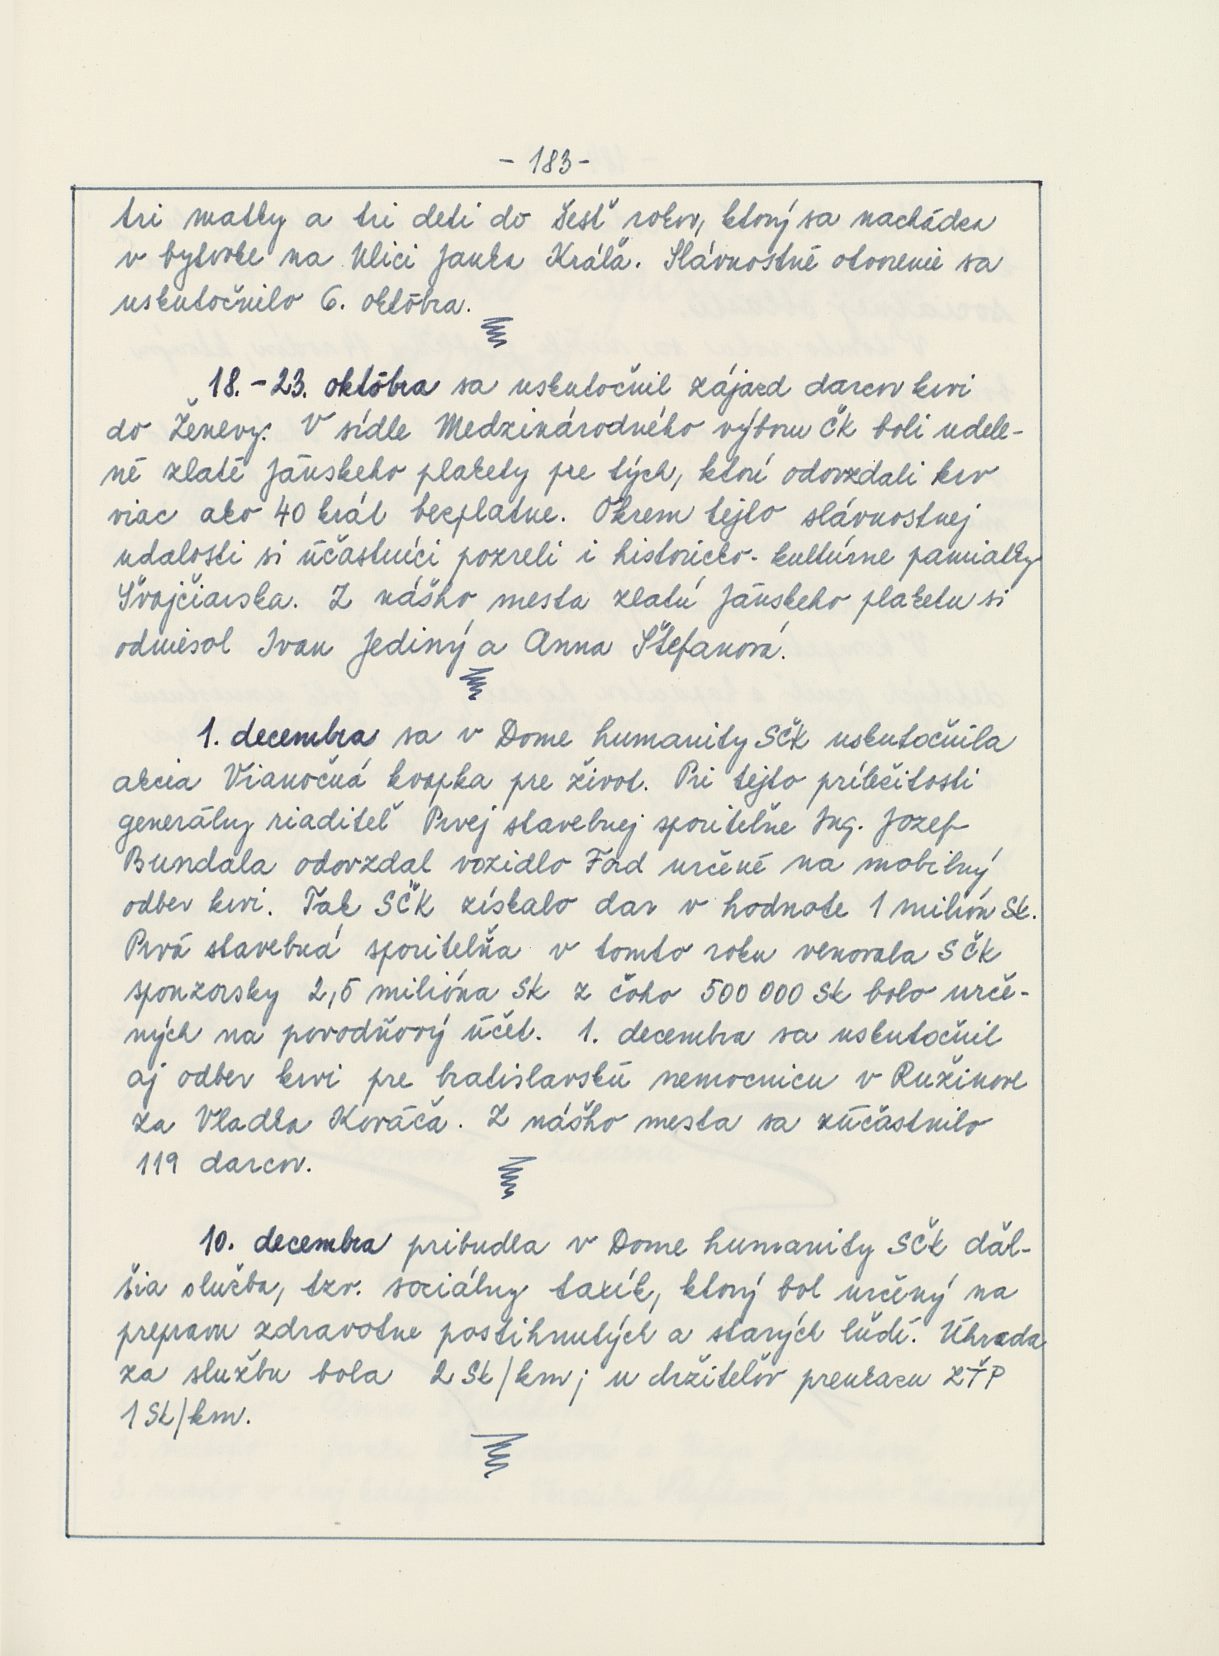 - 183 -
tri matky a tri deti do šesť rokov, ktorý sa nachádza
v bytovke na Ulici Janka Kráľa. Slávnostné otvorenie sa
uskutočnilo 6. októbra.
18. - 23. októbra sa uskutočnil zájazd darcov krvi
do Ženevy. V sídle Medzinárodného výboru ČK boli udele-
né zlaté Jánskeho plakety pre tých, ktorí odovzdali krv
viac ako 40 krát bezplatne. Okrem tejto slávnostnej
udalosti si účastníci pozreli i historicko-kultúrne pamiatky
Švajčiarska. Z nášho mesta zlatú Jánskeho plaketu si
odniesol Ivan Jediný a Anna Štefanová.
1. decembra sa v Dome humanity SČK uskutočnila
akcia Vianočná kvapka pre život. Pri tejto príležitosti
generálny riaditeľ Prvej stavebnej sporiteľne Ing. Jozef
Bundala odovzdal vozidlo Ford určené na mobilný
odber krvi. Tak SČK získalo dar v hodnote 1 milión Sk.
Prvá stavebná sporiteľňa v tomto roku venovala SČK
sponzorsky 2,5 milióna Sk z čoho 500 000 Sk bolo urče-
ných na povodňový účet. 1. decembra sa uskutočnil
aj odber krvi pre bratislavskú nemocnicu v Ružinove
za Vladka Kováča. Z nášho mesta sa zúčastnilo
119 darcov.
10. decembra pribudla v Dome humanity SČK ďal-
šia služba, tzv. sociálny taxík, ktorý bol určený na
prepravu zdravotne postihnutých a starých ľudí. Úhrada
za službu bola 2 Sk/km; u držiteľov preukazu ZŤP
1 Sk/km.